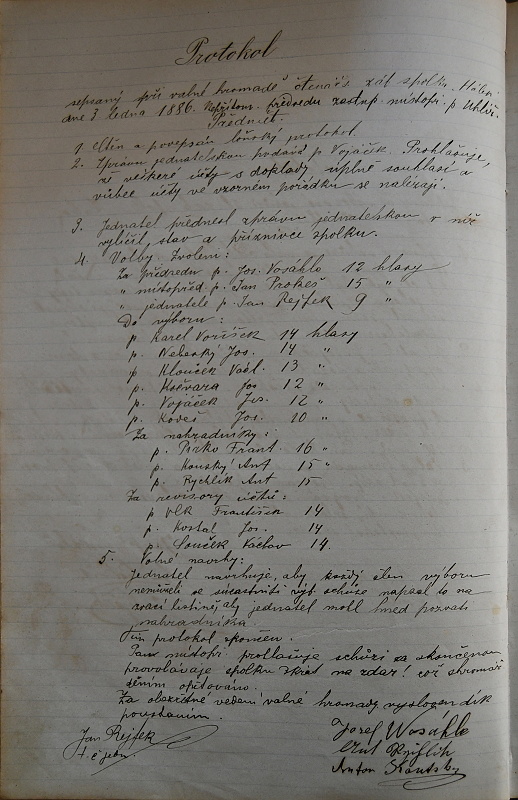 Protokol
sepsaný při valné hromadě čtenář. záb. spolku
dne 3 ledna 1886. předsedu zastup. místopř. p. Uhlíř.
Předčit.
1. Čtěn a povepsán loňský protokol.
2. Zprávu jednatelskou podává p. Vojáček. Prohlašuje,
že veškeré účty s doklady úplně souhlasí a
vůbec účty ve vzorném pořádku se nalézají.
3. Jednatel přednesl zprávu jednatelskou v níž
vylíčil stav a příznivce spolku.
4. Volby. Zvoleni:
Za předsedu p. Jos. Vosáhlo 12 hlasy
" místopřed. p. Jan Prokeš 15 "
" jednatele p. Jan Rejfek 9 "
Do výboru:
p. Karel Voříšek 14 hlasy
p. Nebeský Jos. 14 "
p. Klouček Václ. 13 "
p. Kočvara Jos 12 "
p. Vojáček Jos. 12 "
p. Koveš Jos. 10 "
Za nahradníky:
p. Pirko Frant. 16 "
p. Kouský Ant 15 "
p. Rychlík Ant 15
Za revisory účtů:
p Vlk František 14
p. Kostal Jos. 14
p. Souček Václav 14.
5. Volné návrhy:
Jednatel navrhuje, aby každý člen výboru
nemůže-li se súčastniti výb. schůze napsal to na
zvací listině aby jednatel mohl hned pozvati
nahradníka.
Tím protokol skončen.
Pan místopř. prohlašuje schůzi za skončenou
provolávaje spolku zkrát na zdar! což shromáž
děním opětováno.
Za obezřetné vedení valné hromady vysloven dík
povstáním.
Jan Rejfek
t. č. jedn.
Josef Wosáhlo
Ant Rychlík
Anton Kouský